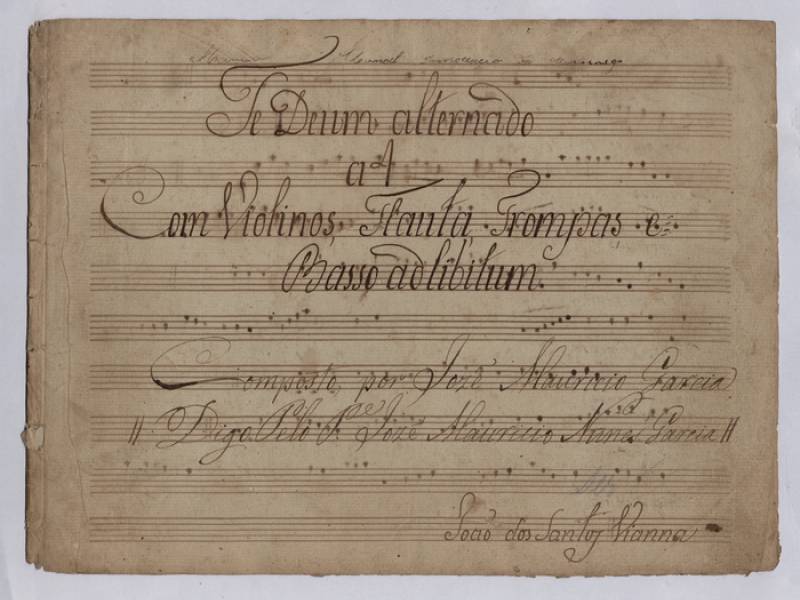 Manoel Innocencio
Te Deum alternado
a 4
Com Violinos, Flauta, Trompas e
Basso ad libitum.
Composto, por Jozé Mauricio Garcia
Digo. Pelo P.e Jozé Mauricio Nunes Garcia
João dos Santos Vianna